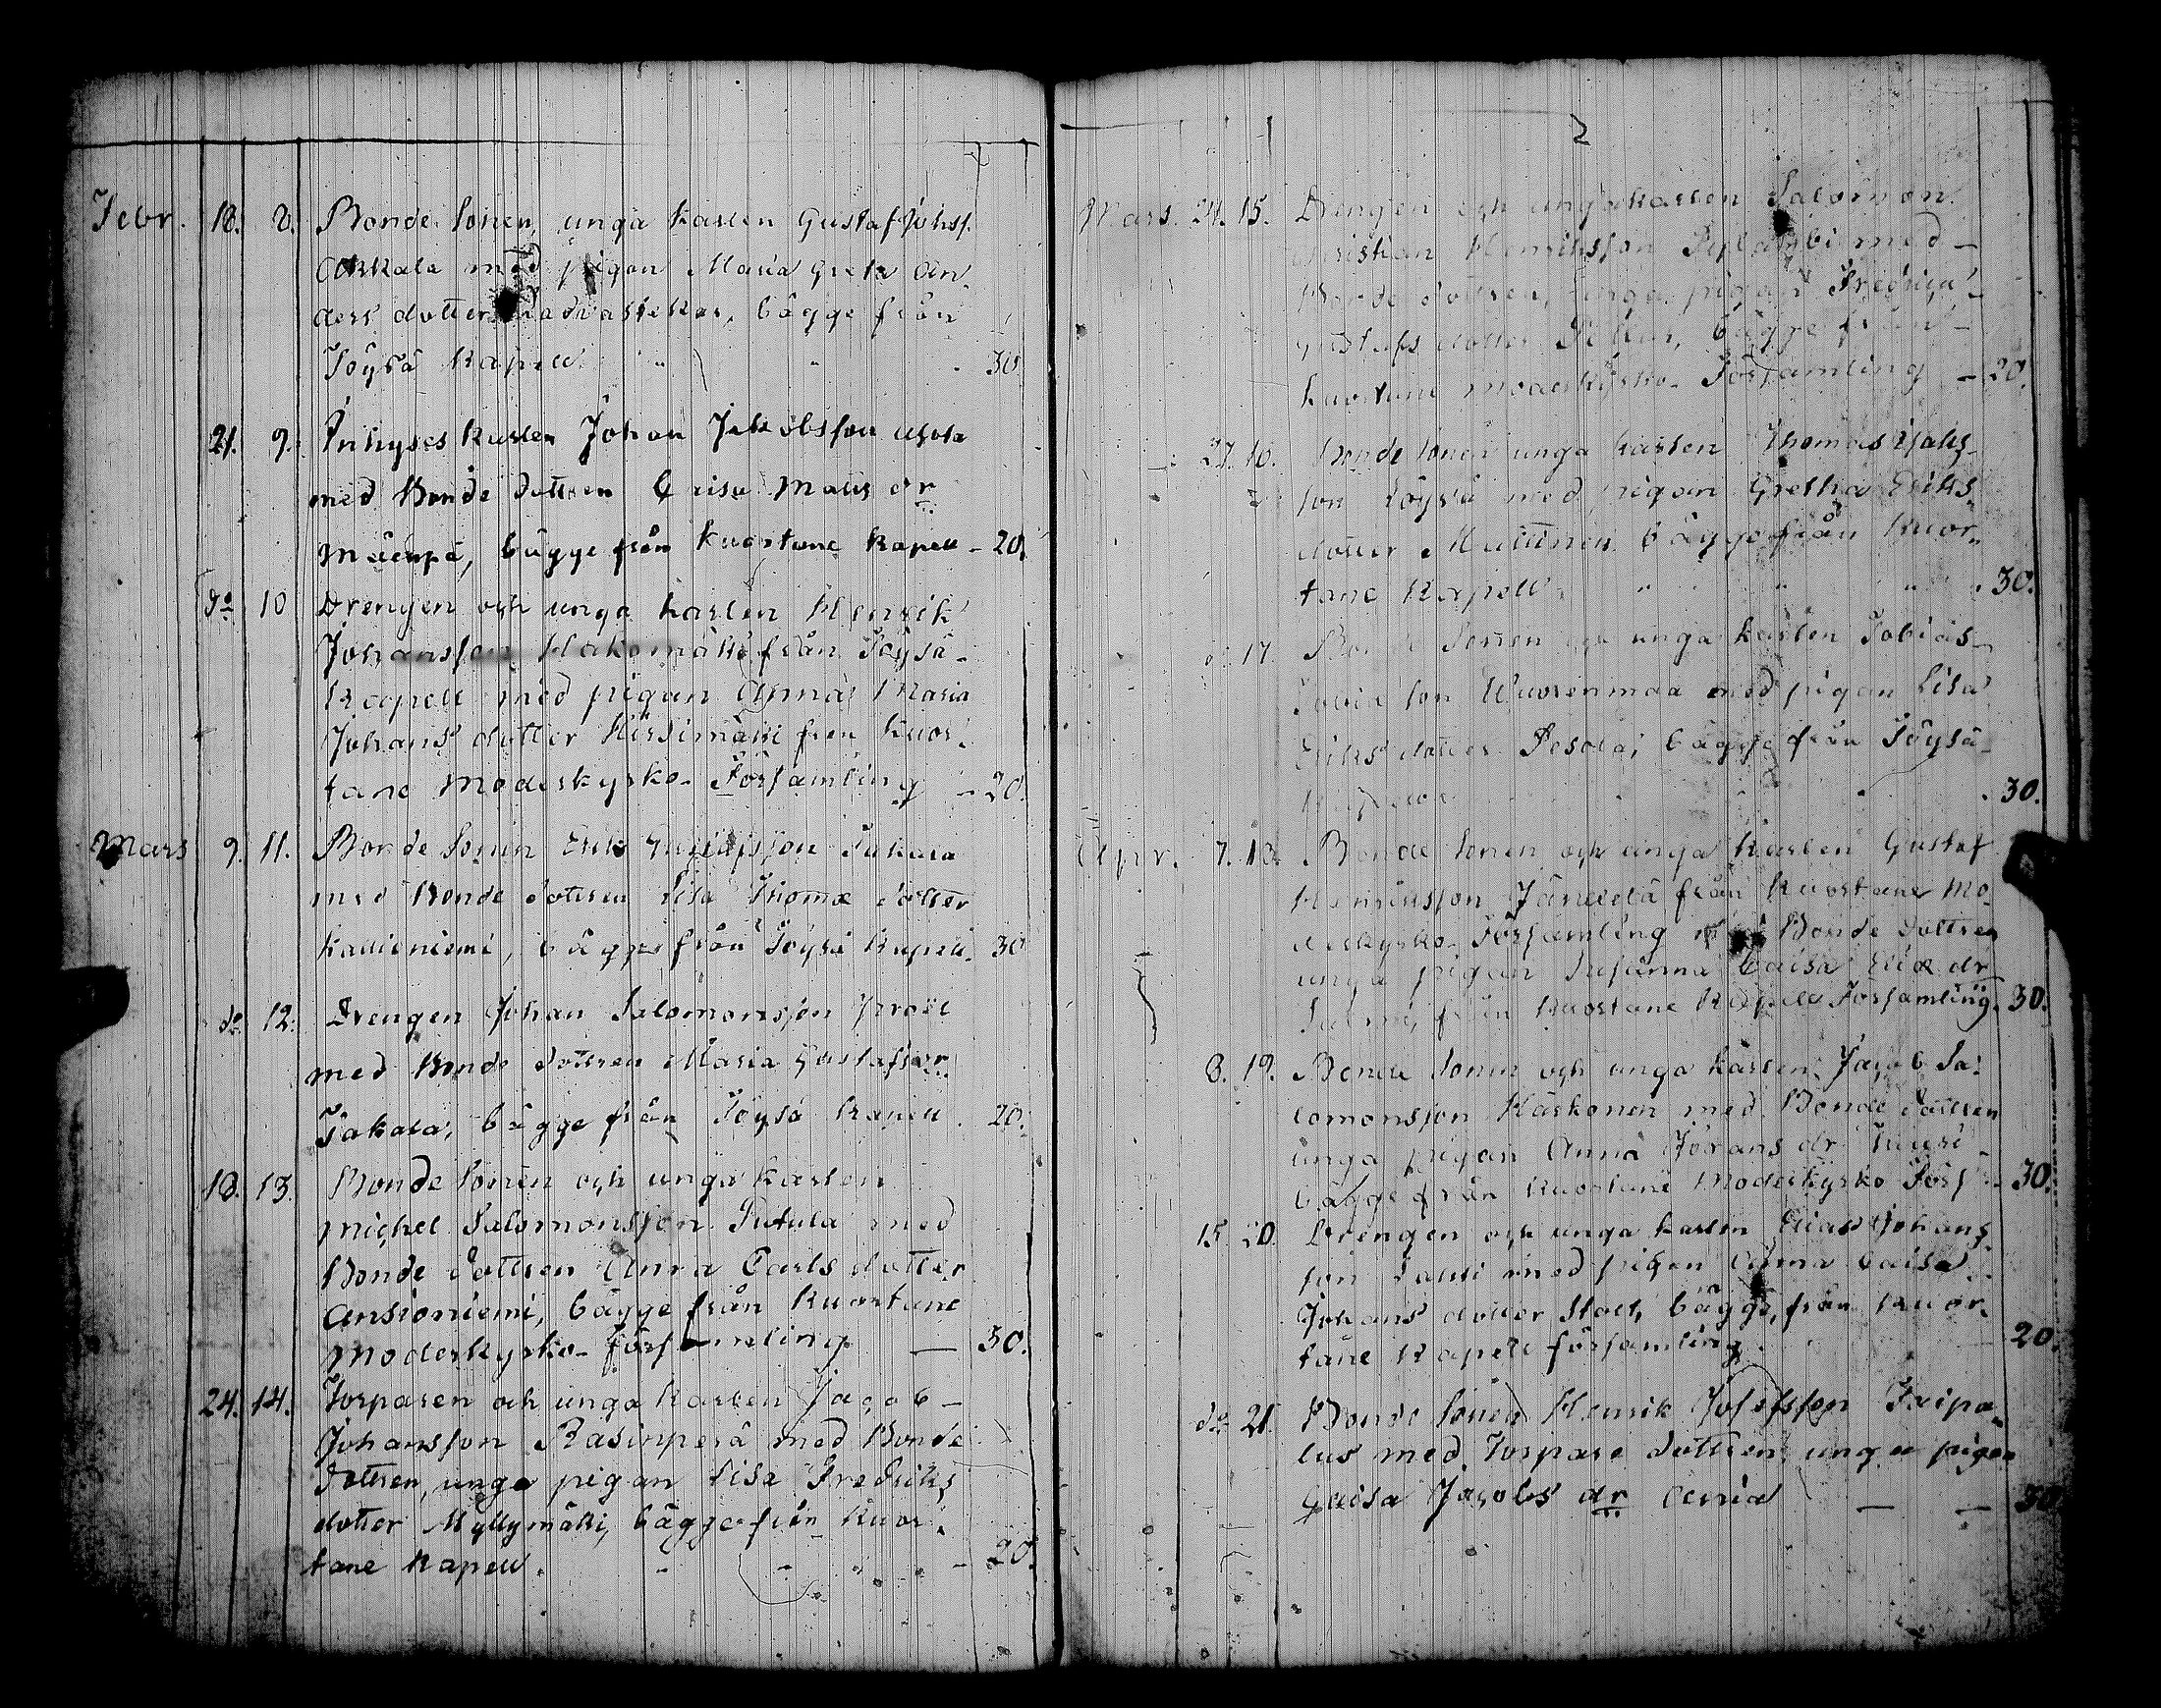 Febr. 18. 8. Bonde Sonen, unga karlen Gustaf Johsf.
Akkala med pigan Maria Greta An
ders dotter bägge från
Töysä Kapell. 30.
21. 9. Inhyses karlen Johan Jakobsson
med Bonde dottren Caisa Matts dr
Mäenpä, bägge från Kuortane Kapell - 20.
do 10 Drengen och unga karlen Henrik
Johansson Hakomäki från Töysä
Kapell med pigan Anna Maria
Johans dotter Hirsimäki från Kuor
tane Moderkyrko-Församling - 20.
Mars 9. 11. Bonde Sonen Erik
med Bonde dottren Lisa Thomæ dotter
Kallioniemi, bägge från Töysä Kapell. 30
do 12. Drengen Johan Salomonsson
med Bonde dottren Maria Gustafs dr.
Sakala, bägge från Töysä Kapell. 20.
18. 13. Bonde Sonen och unga karlen
Michel Salomonsson med
Bonde dottren Anna Carls dotter
Ansioniemi, bägge från Kuortane
Moderkyrko-församling — 30.
24. 14. Torparen och unga karlen Jacob
Johansson Rasinperä med Bonde
dottren, unga pigan Lisa Fredriks
dotter Myllymäki, bägge från Kuor
tane Kapell. - 20.
2
Mars. 24. 15. Drengen och unga karlen Salomon
Christian Henriksson med
Bonde dottren, unga pigan Fredrica
Gustafs dotter bägge från
Kuortane moderkyrko-Församling - 20.
27. 16. Bonde Sonen unga karlen Thomas Isaks
son Töysä med pigan Gretha Eriks
dotter bägge från Kuor
tane Kapell. 30.
d. 17. Bonde Sonen och unga karlen Tobias
Tobiæ son Wuorenmaa med pigan Lisa
Eriks dotter Pesola, bägge från Töysä
Kapell 30.
Apr. 7. 18. Bonde Sonen och unga karlen Gustaf
Henriksson från Kuortane Mo
derkyrko-Församling med Bonde dottren
unga pigan Susanna Caisa Eliæ dr
Salmi, från Kuortane Kapell Församling. 30.
8. 19. Bonde Sonen och unga karlen Jacob Sa
lomonsson Kaskonen med Bonde dottren
unga pigan Anna Görans dr
bägge från Kuortane Moderkyrko Förs - 30.
15. 20. Drengen och unga karlen Elias Johans
son med pigan Anna Caisa
Johans dotter Stolt, bägge, från Kuor
tane Kapell församling 20.
do 21. Bonde Sonen Henrik Josefsson Taipa
lus med Torpare dottren, unga pigan
Caisa Jacobs dr — — 30.